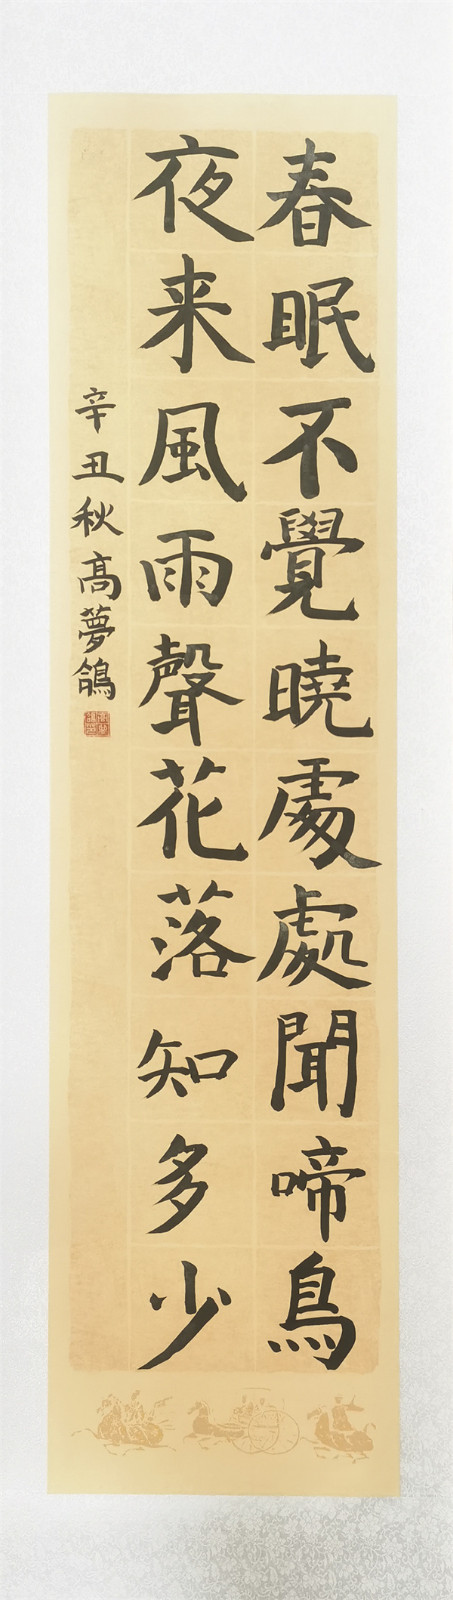 春眠不覺曉處處聞啼鳥
夜来風雨聲花落知多少
辛丑秋高夢鴿